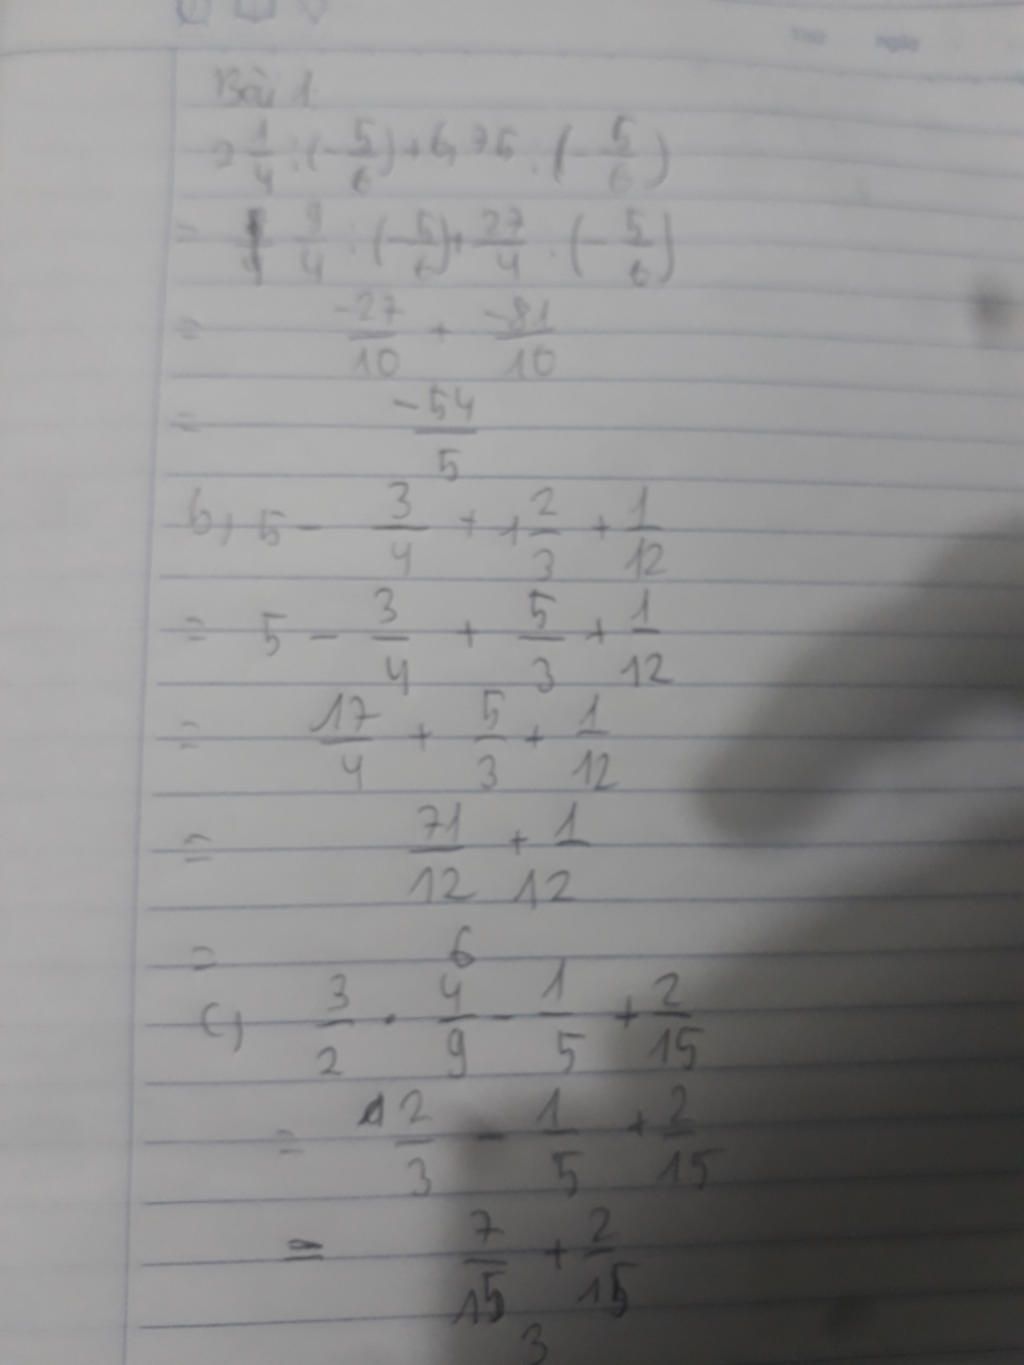 Bài 1
2 1/4 : (- 5/6) + 6,75 . (- 5/6)
= 9/4 : (- 5/6) + 27/4 . (- 5/6)
= -27/10 + -81/10
= -54/5
b, 5 - 3/4 + 1 2/3 + 1/12
= 5 - 3/4 + 5/3 + 1/12
= 17/4 + 5/3 + 1/12
= 71/12 + 1/12
= 6
c, 3/2 . 4/9 - 1/5 + 2/15
= 2/3 - 1/5 + 2/15
= 7/15 + 2/15
3